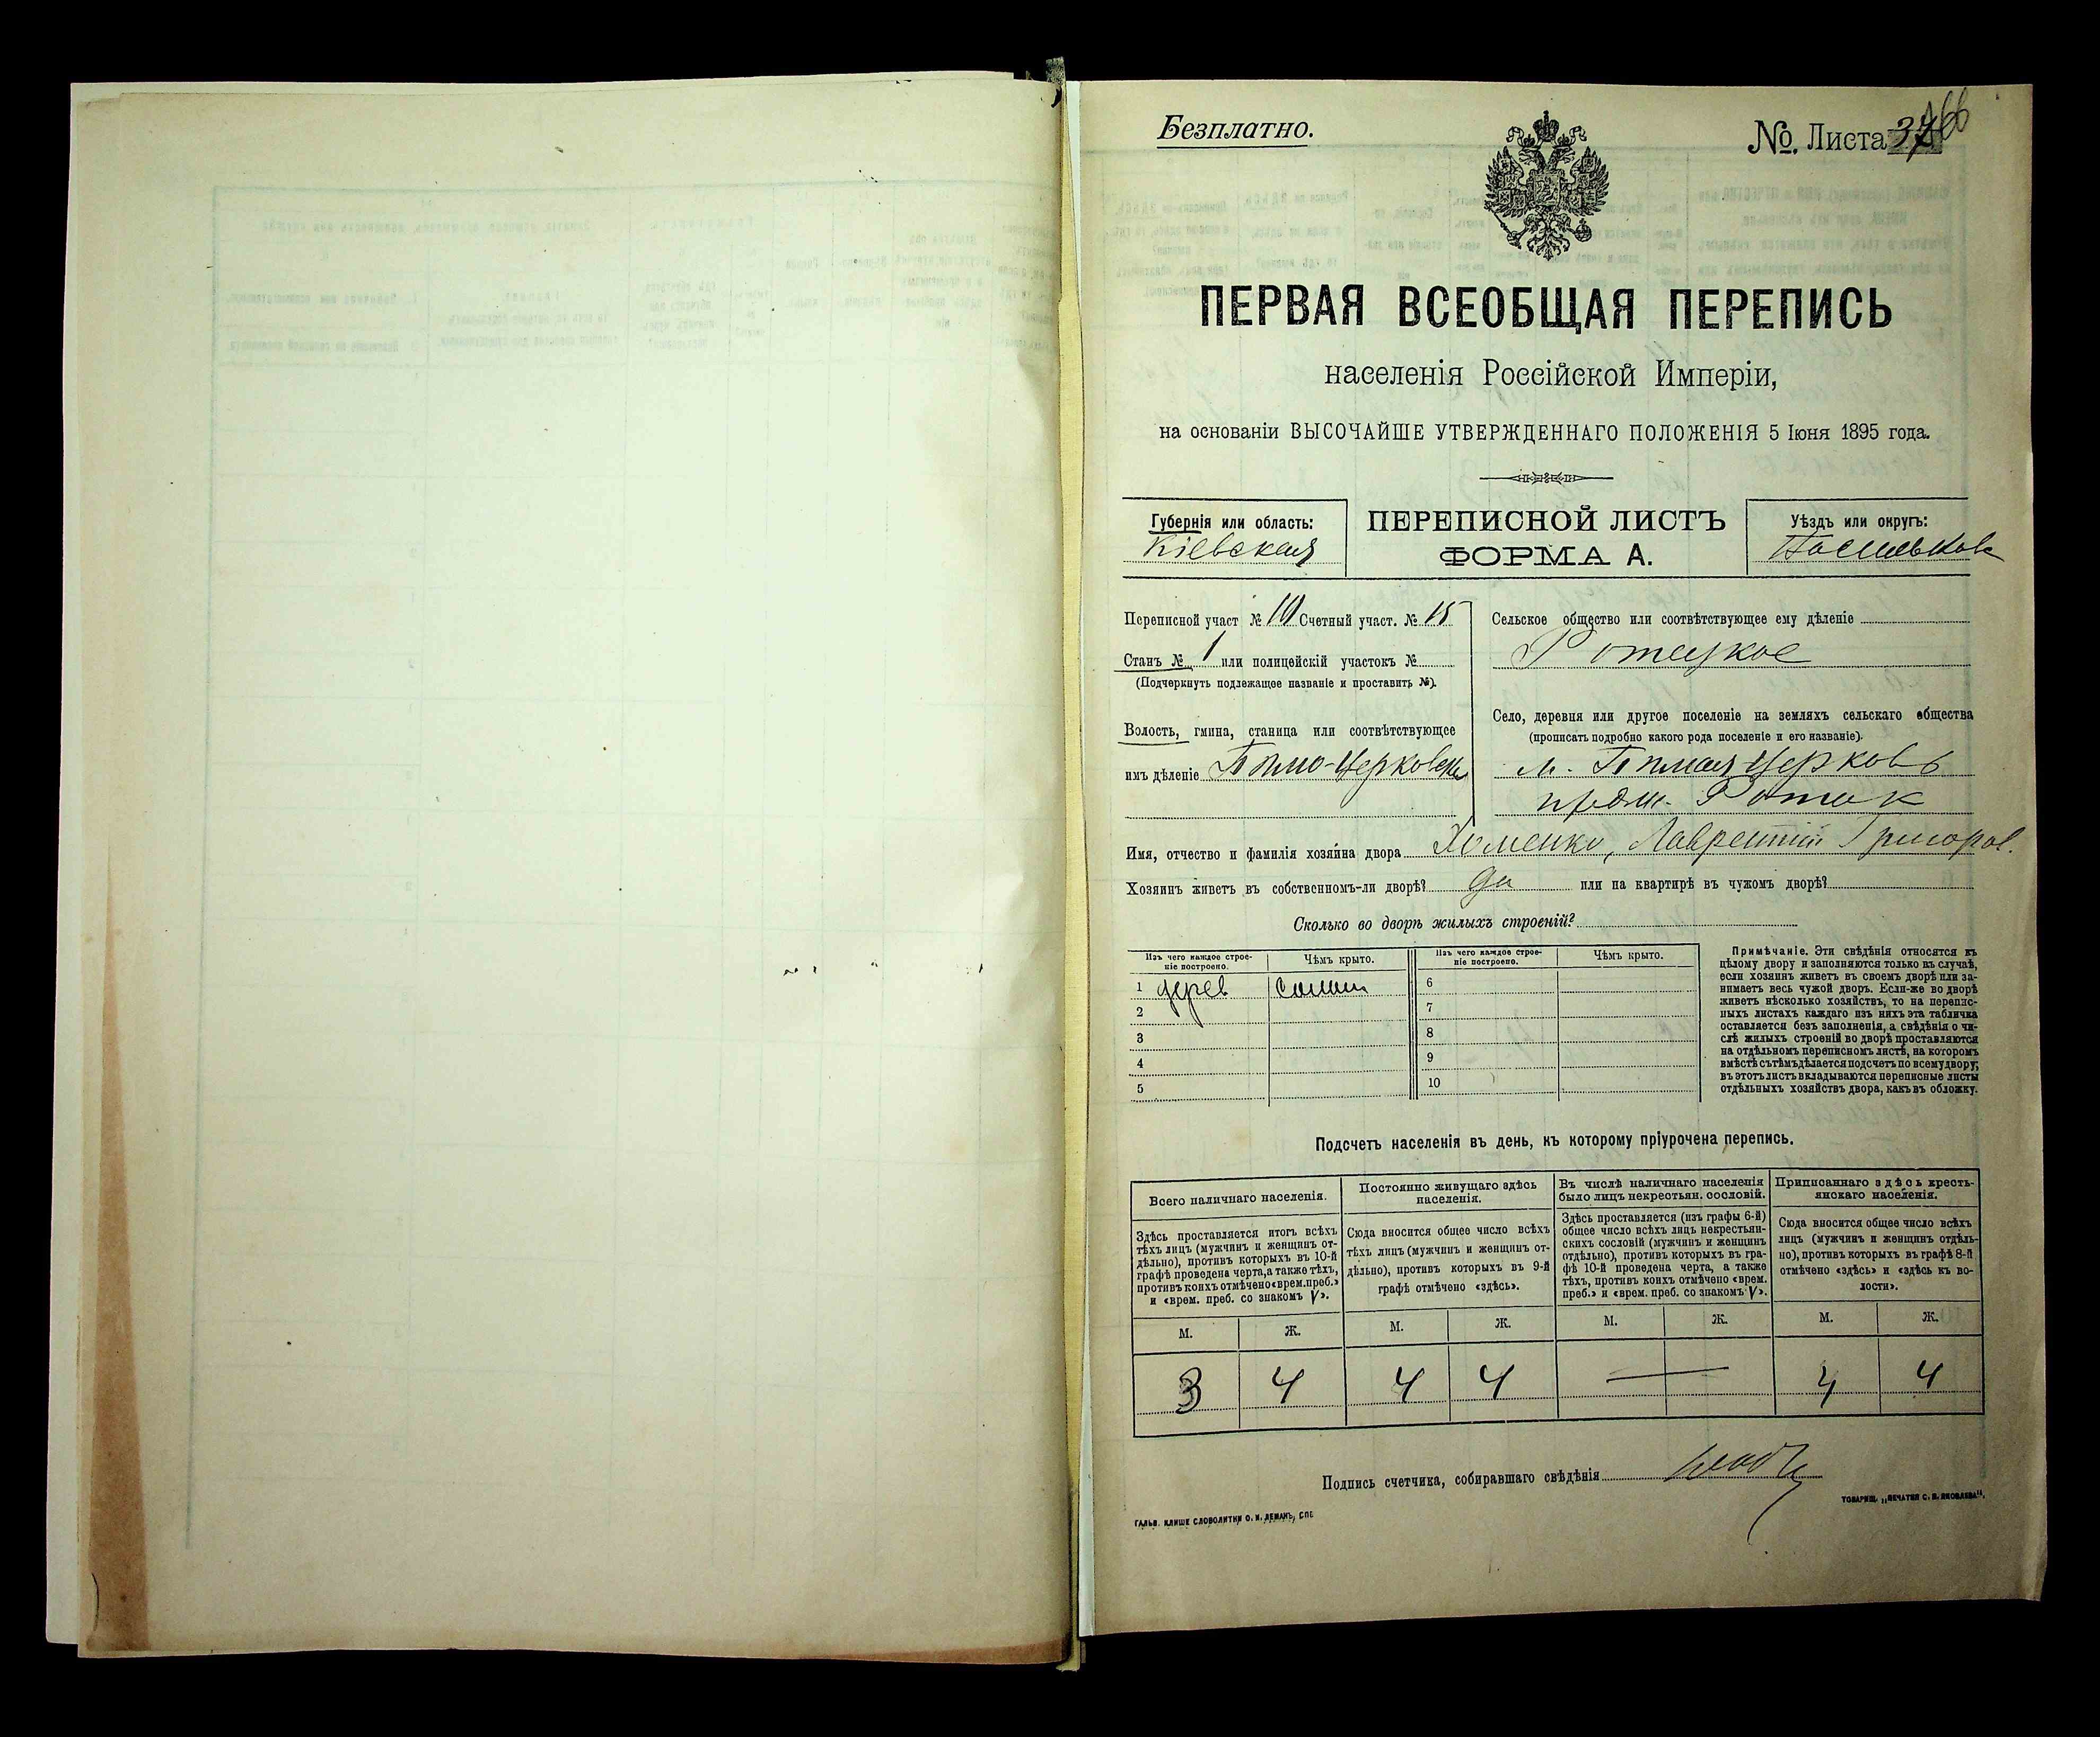 Безплатно.
№. Листа 37
ПЕРВАЯ ВСЕОБЩАЯ ПЕРЕПИСЬ
населенія Россійской Имперіи,
на основаніи ВЫСОЧАЙШЕ УТВЕРЖДЕННАГО ПОЛОЖЕНІЯ 5 Іюня 1895 года.
Губернія или область:
Кіевская
ПЕРЕПИСНОЙ ЛИСТЪ
ФОРМА А.
Уѣздъ или округъ:
Переписной участ № 10 Счетный участ. № 15
Станъ № 1 или полицейскій участокъ №
(Подчеркнуть подлежащее названіе и проставить №).
Волость, гмина, станица или соотвѣтствующее
имъ дѣленіе Бѣло-Церковская
Сельское общество или соотвѣтствующее ему дѣленіе
Ротцкое
Село, деревня или другое поселеніе на земляхъ сельскаго общества
(прописать подробно какого рода поселеніе и его названіе).
м. Бѣлая Церковь
Роток
Имя, отчество и фамилія хозяйна двора Хоменко, Лаврентій Григоров.
Хозяинъ живетъ въ собственномъ-ли дворѣ? да или на квартирѣ въ чужомъ дворѣ?
Сколько во дворѣ жилыхъ строеній?
Изъ чего каждое строе-
ніе построено.
Чѣмъ крыто.
Изъ чего каждое строе-
ніе построено.
Чѣмъ крыто.
1 дерев солом
2
3
4
5
6
7
8
9
10
Примѣчаніе. Эти свѣдѣнія относятся къ
цѣлому двору и заполняются только въ случаѣ,
если хозяинъ живетъ въ своемъ дворѣ или за-
нимаетъ весь чужой дворъ. Если-же во дворѣ
живетъ нѣсколько хозяйствъ, то на перепис-
ныхъ листахъ каждаго изъ нихъ эта табличка
оставляется безъ заполненія, а свѣдѣнія о чи-
слѣ жилыхъ строеній во дворѣ проставляются
на отдѣльномъ переписномъ листѣ, на которомъ
вмѣстѣ съ тѣмъ дѣлается подсчетъ по всему двору;
въ этотъ листъ вкладываются переписные листы
отдѣльныхъ хозяйствъ двора, какъ въ обложку.
Подсчетъ населенія въ день, къ которому пріурочена перепись.
Всего наличнаго населенія.
Здѣсь проставляется итогъ всѣхъ
тѣхъ лицъ (мужчинъ и женщинъ от-
дѣльно), противъ которыхъ въ 10-й
графѣ проведена черта, а также тѣхъ,
противъ коихъ отмѣчено «врем. преб.»
и «врем. преб. со знакомъ V».
Постоянно живущаго здѣсь
населенія.
Сюда вносится общее число всѣхъ
тѣхъ лицъ (мужчинъ и женщинъ от-
дѣльно), противъ которыхъ въ 9-й
графѣ отмѣчено «здѣсь».
Въ числѣ наличнаго населенія
было лицъ некрестьян. сословій.
Здѣсь проставляется (изъ графы 6-й)
общее число всѣхъ лицъ некрестьян-
скихъ сословій (мужчинъ и женщинъ
отдѣльно), противъ которыхъ въ гра-
фѣ 10-й проведена черта, а также
тѣхъ, противъ коихъ отмѣчено «врем.
преб.» и «врем. преб. со знакомъ V».
Приписаннаго здѣсь кресть-
янскаго населенія.
Сюда вносится общее число всѣхъ
лицъ (мужчинъ и женщинъ отдѣль-
но), противъ которыхъ въ графѣ 8-й
отмѣчено «здѣсь» и «здѣсь къ во-
лости».
М. Ж. М. Ж. М. Ж. М. Ж.
3 4 4 4 — 4 4
Подпись счетчика, собиравшаго свѣдѣнія
ГАЛЬВ. КЛИШЕ СЛОВОЛИТНИ О. И. ЛЕМАНЪ, СПБ
ТОВАРИЩ. „ПЕЧАТНЯ С. П. ЯКОВЛЕВА".